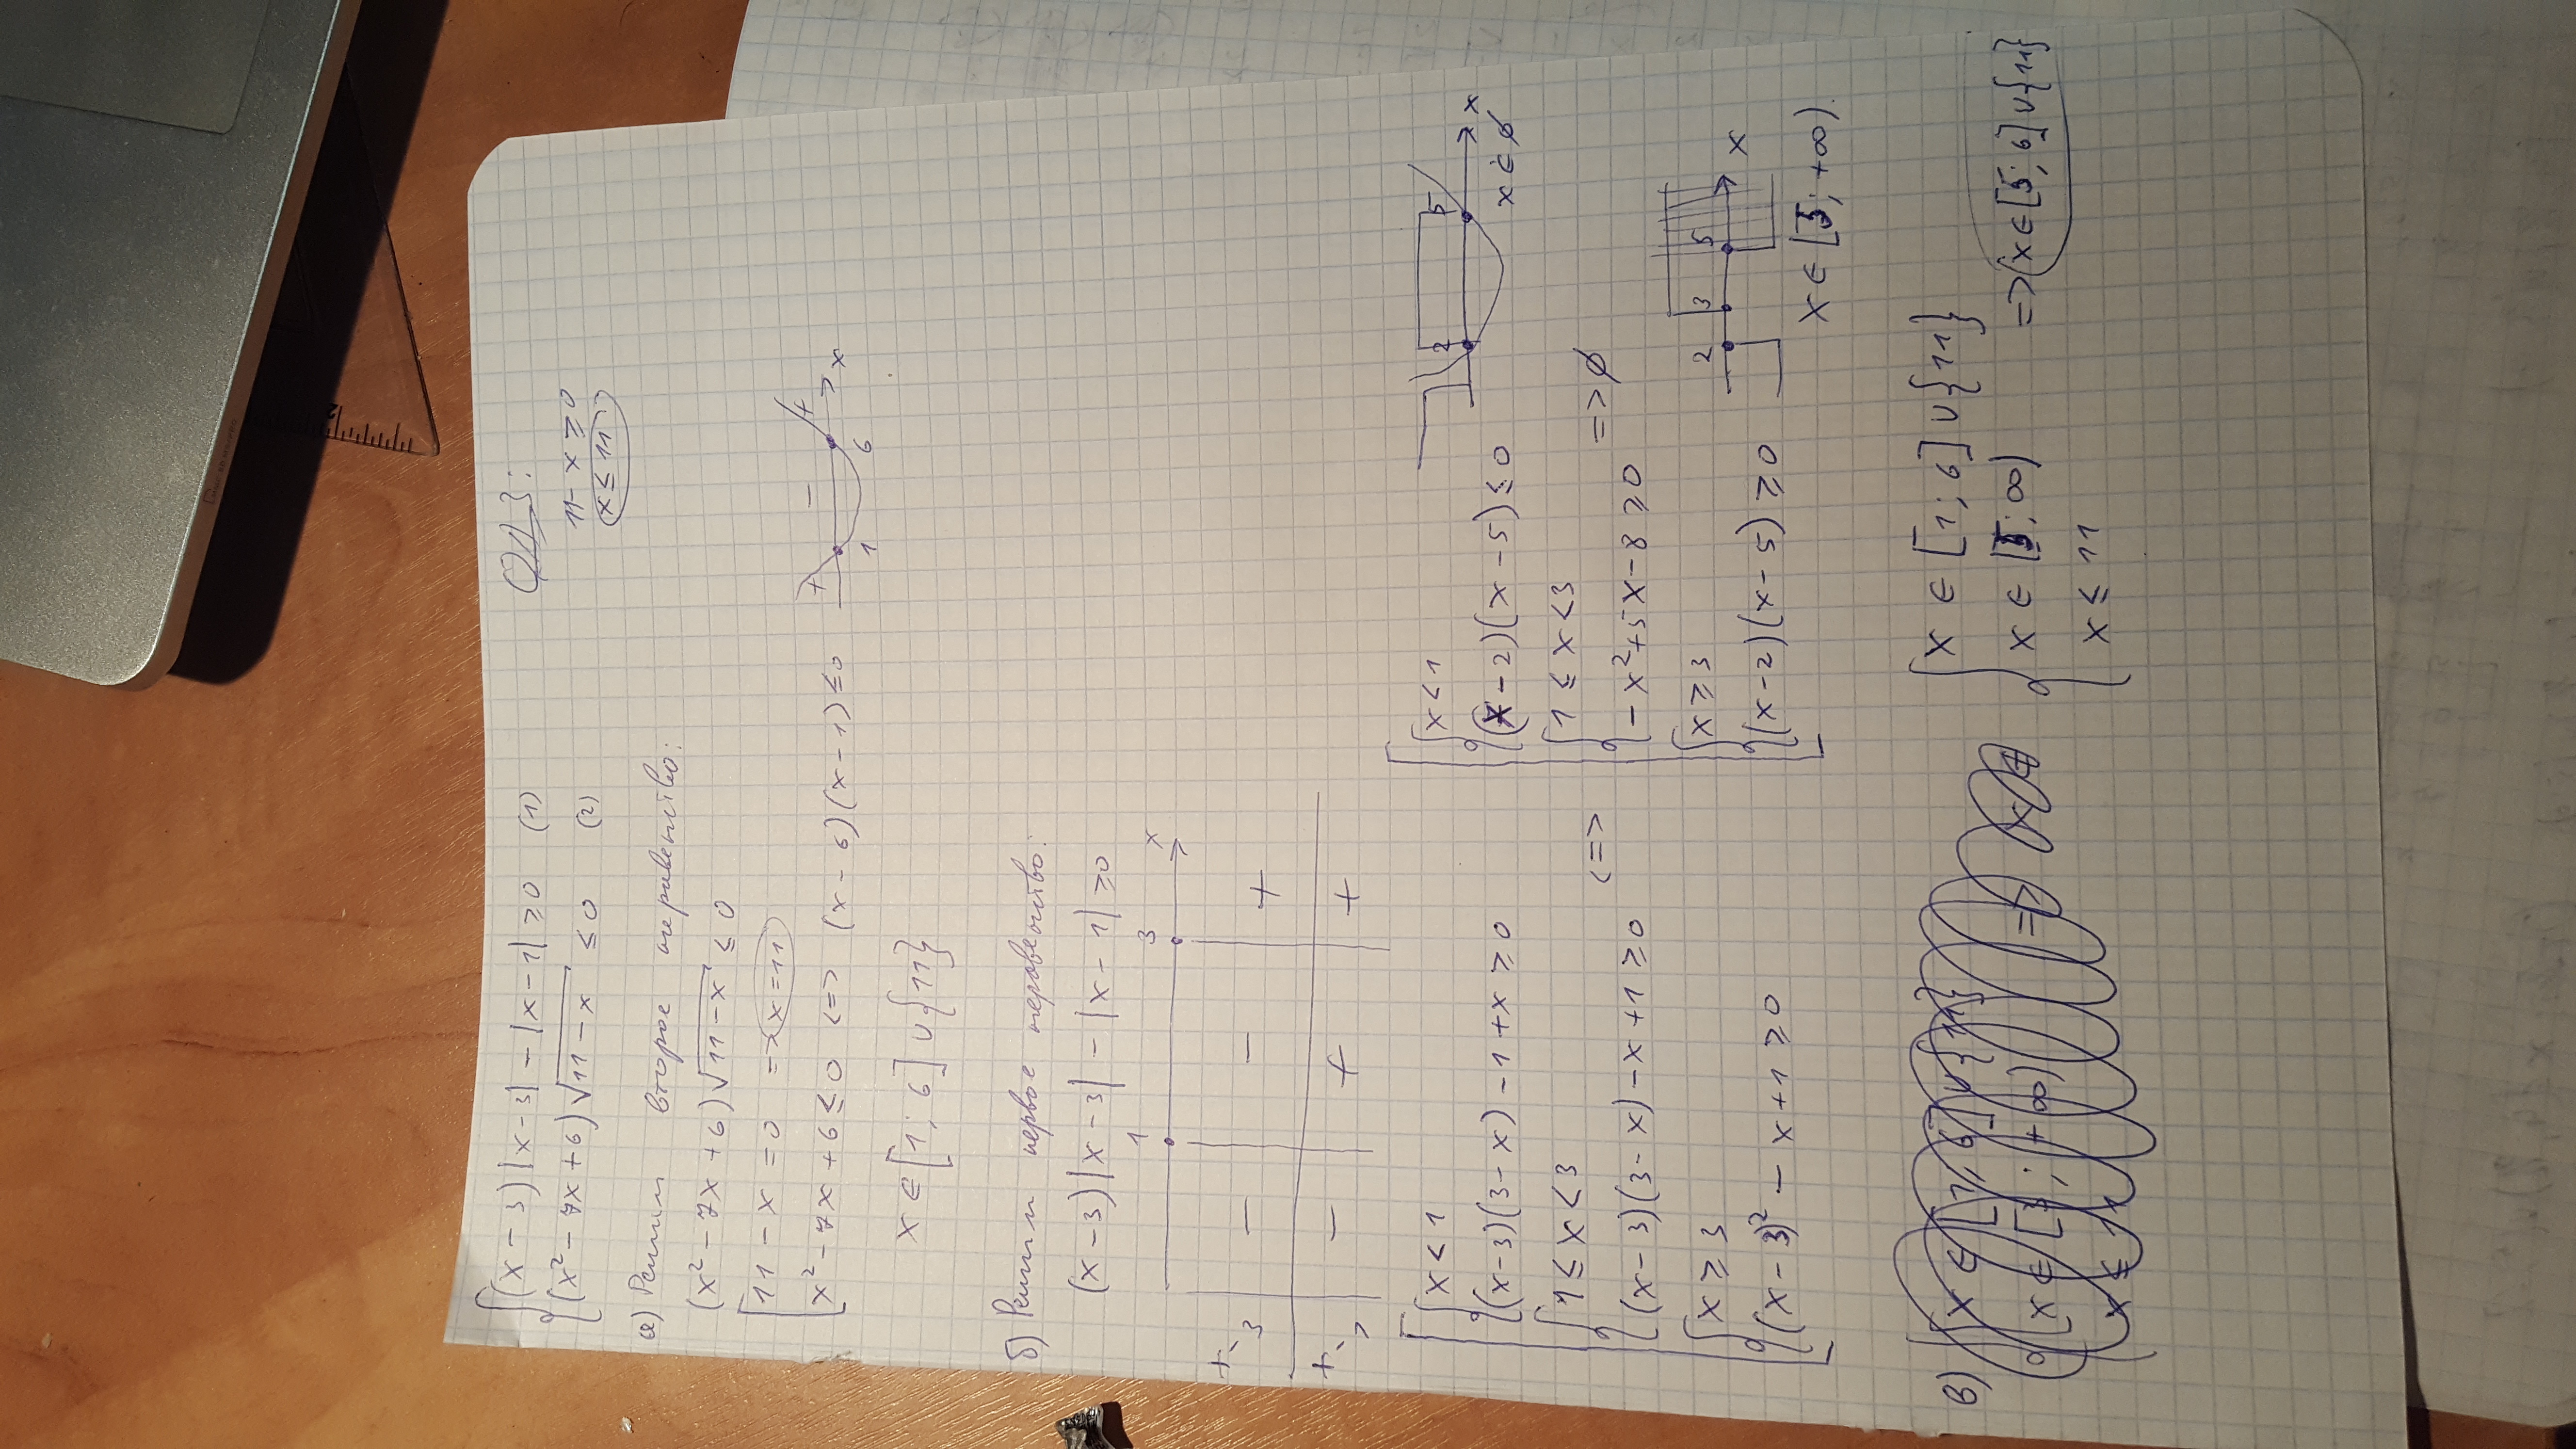 { (x-3)|x-3| - |x-1| ≥ 0 (1)
{ (x² - 7x + 6)√(11-x) ≤ 0 (2)
ОДЗ:
11 - x ≥ 0
x ≤ 11
а) Решим второе неравенство:
(x² - 7x + 6)√(11-x) ≤ 0
[ 11 - x = 0 => x = 11
[ x² - 7x + 6 ≤ 0 <=> (x - 6)(x - 1) ≤ 0
+ - +
1 6 x
x ∈ [1; 6] ∪ {11}
б) Решим первое неравенство:
(x-3)|x-3| - |x-1| ≥ 0
1 3 x
- - +
- + +
[ { x < 1
{ (x-3)(3-x) - 1 + x ≥ 0
{ 1 ≤ x < 3
{ (x-3)(3-x) - x + 1 ≥ 0
{ x ≥ 3
{ (x-3)² - x + 1 ≥ 0
<=>
[ { x < 1
{ (x-2)(x-5) ≤ 0
{ 1 ≤ x < 3
{ -x² + 5x - 8 ≥ 0 => ∅
{ x ≥ 3
{ (x-2)(x-5) ≥ 0
2 5 x
x ∈ ∅
2 3 5 x
x ∈ [5; +∞)
в)
{ x ∈ [1; 6] ∪ {11}
{ x ∈ [5; ∞) => x ∈ [5; 6] ∪ {11}
{ x ≤ 11